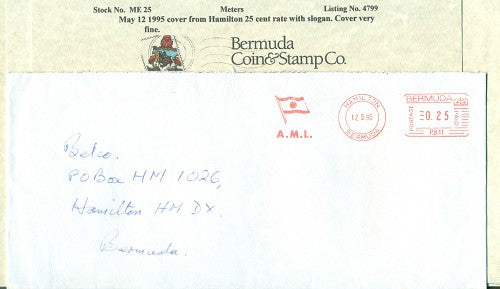 Stock No. ME 25 Meters Listing No. 4799
May 12 1995 cover from Hamilton 25 cent rate with slogan. Cover very
fine.
Bermuda
Coin & Stamp Co.
A.M.L.
HAMILTON
12 5 95
BERMUDA
BERMUDA
POSTAGE
0.25
PAID
P.B.11
Belco.
PO Box HM 1026,
Hamilton HM DX.
Bermuda.